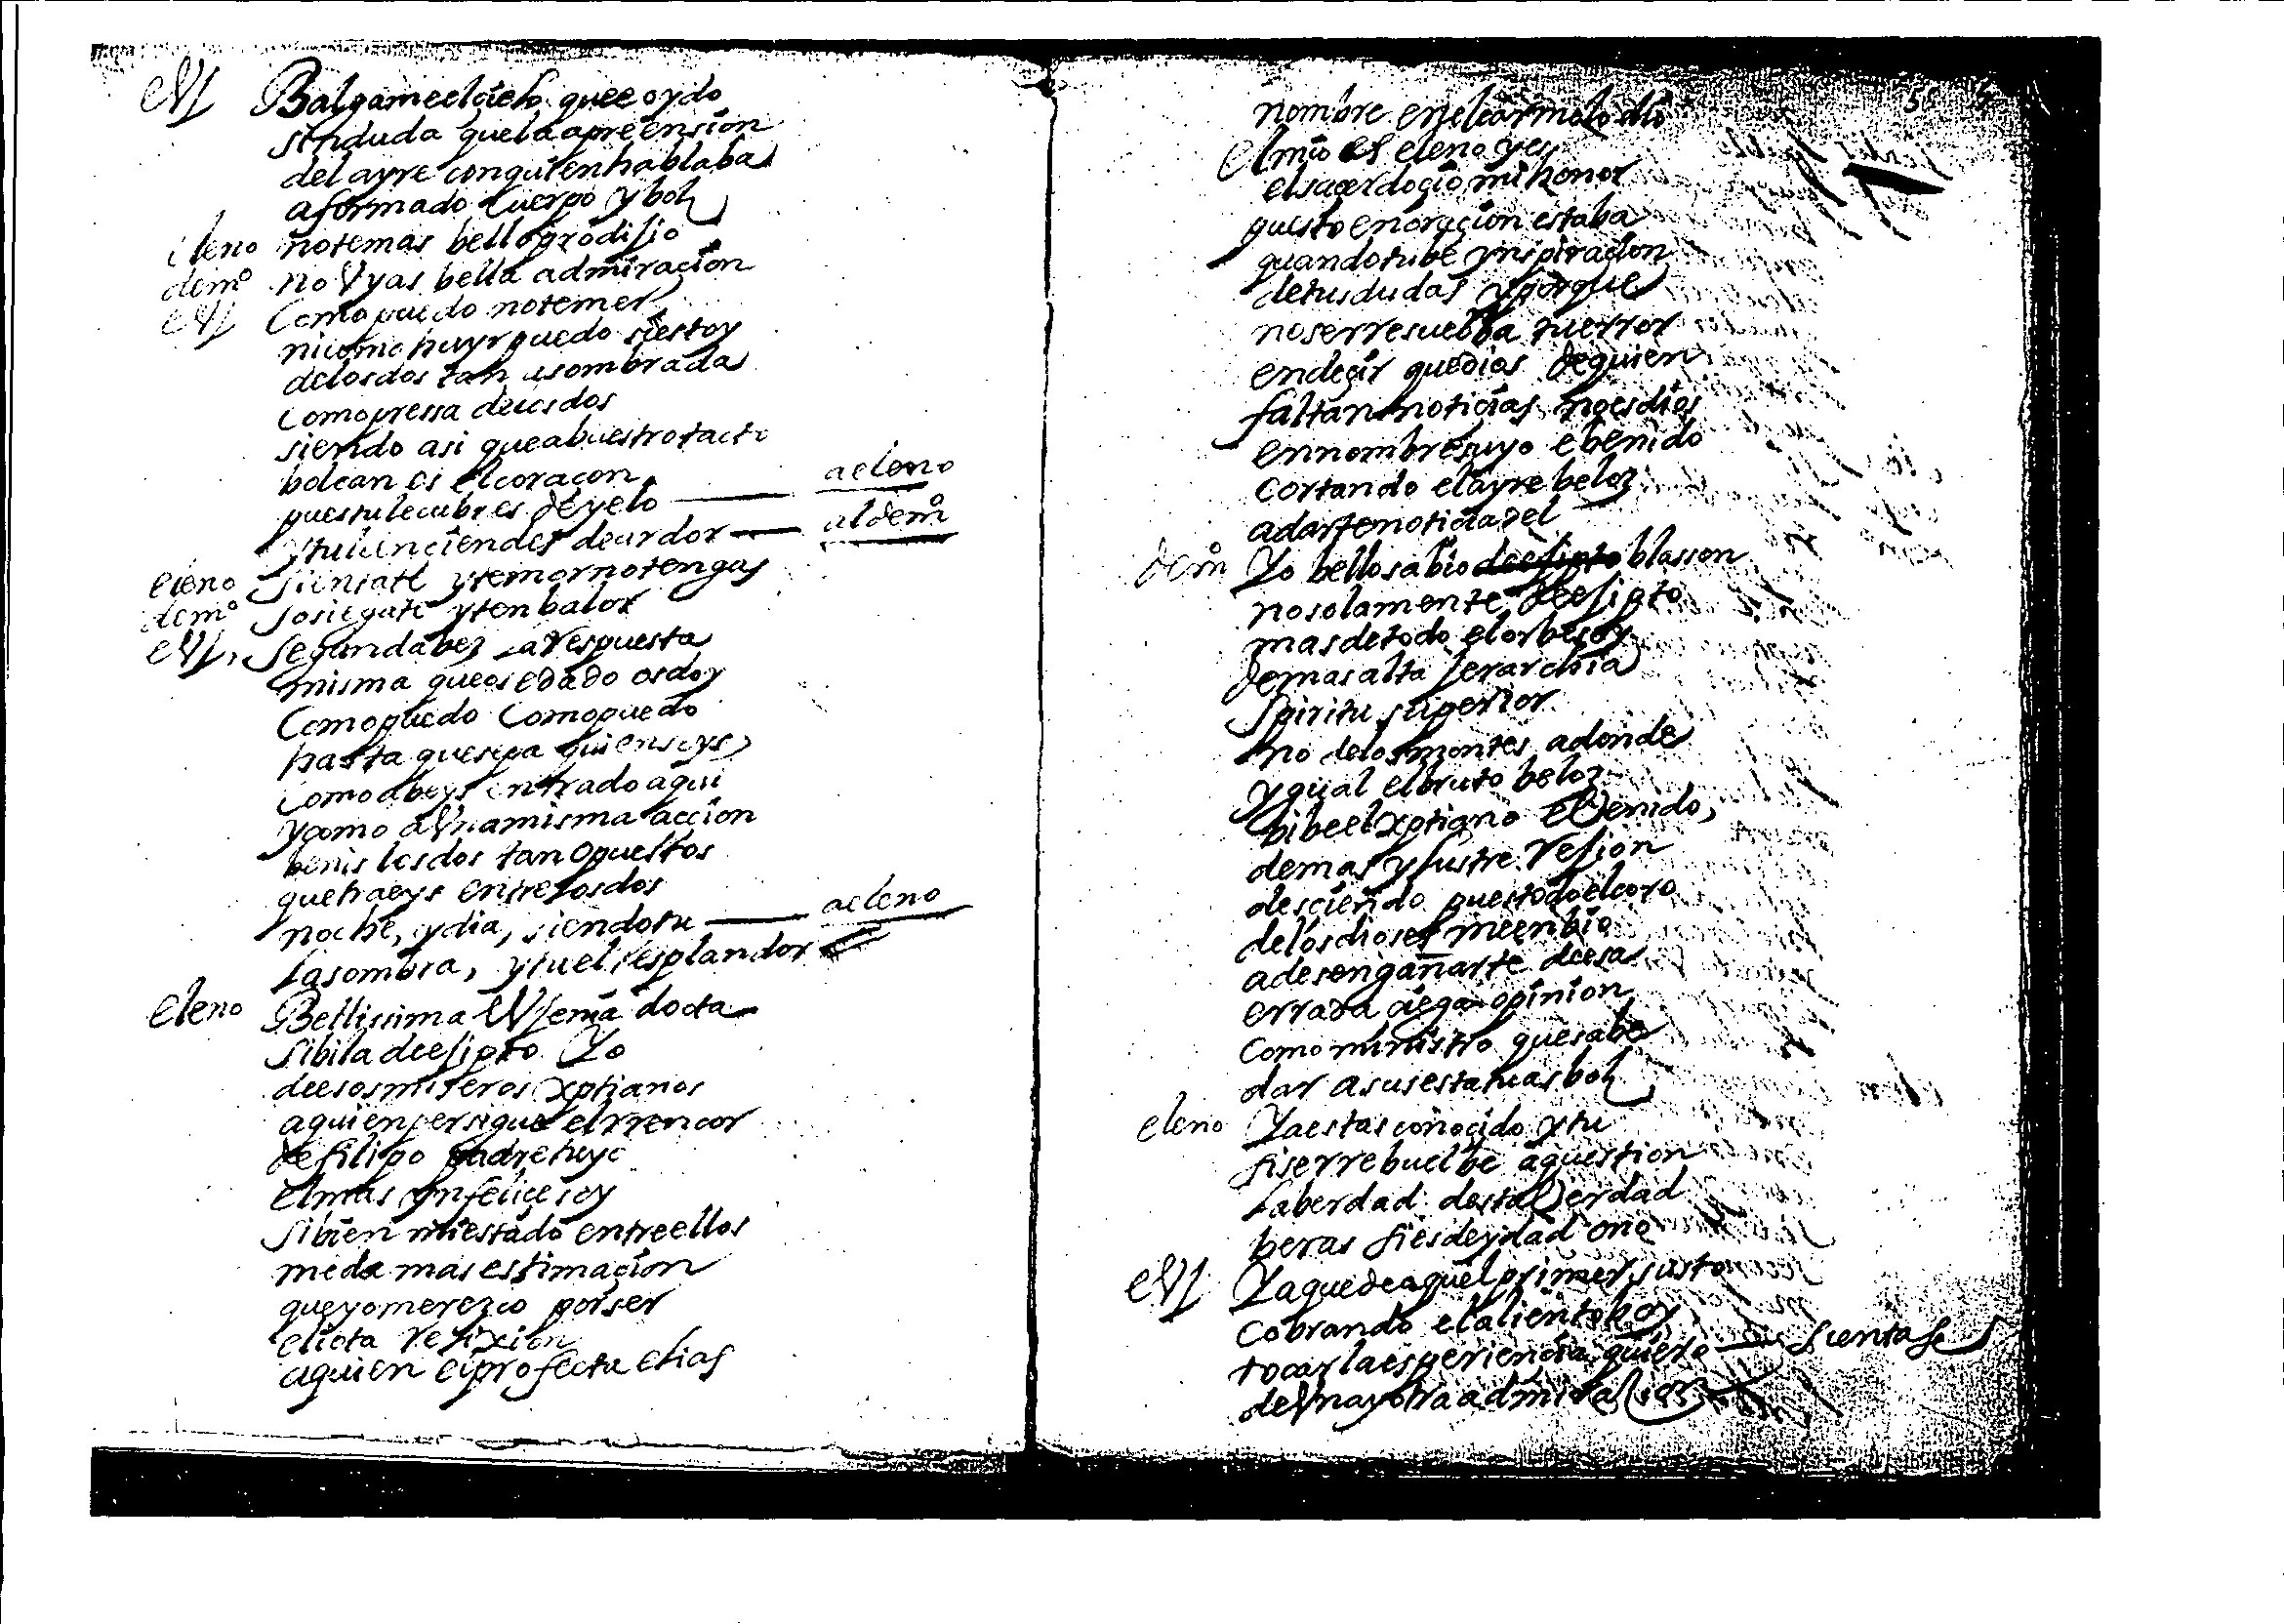 eug Balgame el cielo que e oydo
sin duda que la apreension
del ayre con quien hablaba
a formado cuerpo y boz
eleno no temas bello prodijio
demº no Vyas bella admiracion
eug Como puedo no temer
ni como huyr puedo si estoy
de los dos tan asombrada
como pressa de los dos
siendo asi que a buestro tacto
bolcan es el coraçon
pues tu le cubres de yelo — a eleno
y tu le enciendes de ardor — al demº
eleno sientate y temor no tengas
demº sosiegate y ten balor
eug, Segunda bez la Respuesta
misma que os e dado os doy
Como puedo Como puedo
hasta que sepa quien soys
como abeys entrado aqui
y como a Vna misma accion
benis los dos tan opuestos
que traeys entre los dos
noche, y dia, siendo tu — a eleno
la sombra, y tu el resplandor
eleno Bellissima eugenia docta
sibila de ejipto Yo
de esos miseros xptianos
a quien persigue el rrencor
de filipo padre tuyo
el mas ynfeliçe soy
si bien mi estado entre ellos
me da mas estimaçion
que yo merezco por ser
en Relixion
a quien el profecta elias
nombre en el carmelo dio
el mio es eleno y es
el saçerdoçio mi honor
puesto en oraçion estaba
quando tube ynspiracion
de tus dudas y porque
no se rresuelba tu error
en deçir que dios de quien
faltan notiçias no es dios
en nombre suyo e benido
cortando el ayre beloz
a darte notiçia del
demº Yo bello sabio de ejipto blasson
no solamente de ejipto
mas de todo el orbe soy
de mas alta jerarchia
spiritu superior
no de los montes adonde
ygual el bruto beloz
bibe el xptiano e Venido,
de mas ylustre Rejion
desciendo pues todo el coro
de los dioses me enbio
a desengañarte de esa
errada çiega opinion
como ministro que sabe
dar a sus estatuas boz
eleno Ya estas conoçido y tu
si se rrebuelbe a question
la berdad desta Verdad
beras si es deydad o no
eug Ya que de aquel primer susto
cobrando el aliento boy
tocar la esperiençia quiero — sientase
de Vna y otra admiraçion